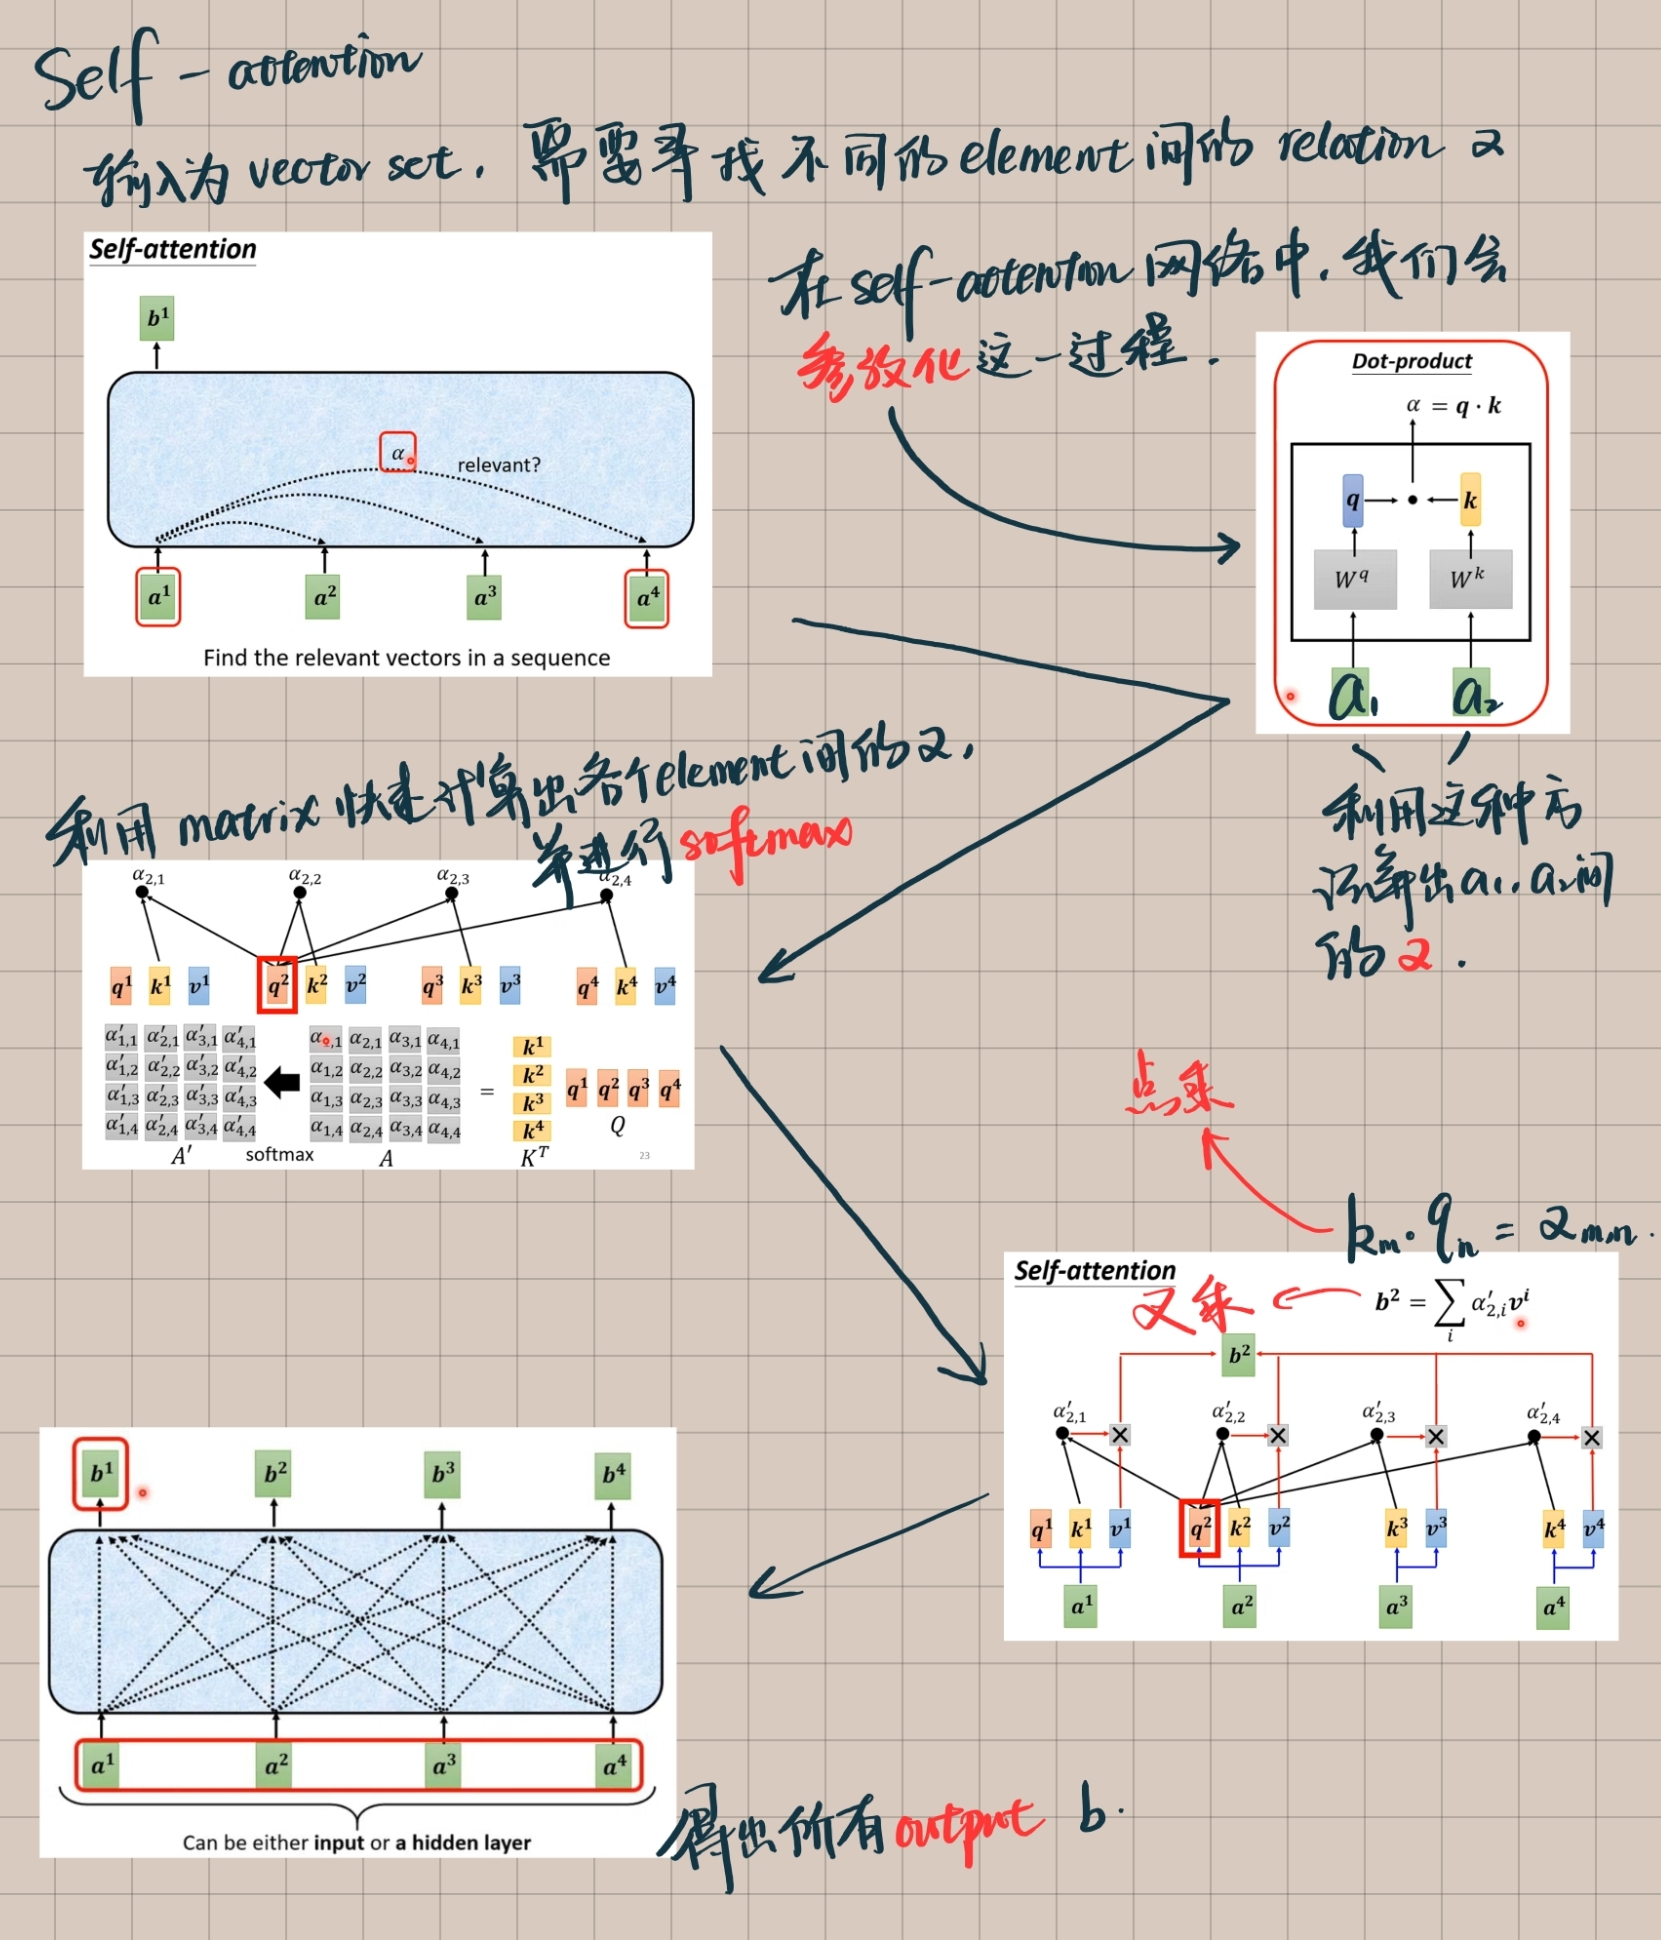 Self-attention
输入为 vector set. 需要寻找不同的 element 间的 relation α
Self-attention
b¹
α
relevant?
a¹ a² a³ a⁴
Find the relevant vectors in a sequence
在 self-attention 网络中, 我们会
参数化这一过程.
Dot-product
α = q · k
q k
W^q W^k
a₁ a₂
利用这种方
法算出 a₁, a₂ 间
的 α.
利用 matrix 快速计算出各个 element 间的 α,
并进行 softmax
α₂,₁ α₂,₂ α₂,₃ α₂,₄
q¹ k¹ v¹ q² k² v² q³ k³ v³ q⁴ k⁴ v⁴
α′₁,₁ α′₂,₁ α′₃,₁ α′₄,₁ α ,₁ α₂,₁ α₃,₁ α₄,₁ k¹
α′₁,₂ α′₂,₂ α′₃,₂ α′₄,₂ α₁,₂ α₂,₂ α₃,₂ α₄,₂ = k² q¹ q² q³ q⁴
α′₁,₃ α′₂,₃ α′₃,₃ α′₄,₃ α₁,₃ α₂,₃ α₃,₃ α₄,₃ k³
α′₁,₄ α′₂,₄ α′₃,₄ α′₄,₄ α₁,₄ α₂,₄ α₃,₄ α₄,₄ k⁴ Q
A′ softmax A Kᵀ 23
点乘
kₘ · qₙ = αₘ,ₙ.
Self-attention
叉乘
b² = ∑ᵢ α′₂,ᵢvⁱ
b²
α′₂,₁ α′₂,₂ α′₂,₃ α′₂,₄
× × × ×
q¹ k¹ v¹ q² k² v² k³ v³ k⁴ v⁴
a¹ a² a³ a⁴
b¹ b² b³ b⁴
a¹ a² a³ a⁴
Can be either input or a hidden layer
得出所有 output b.